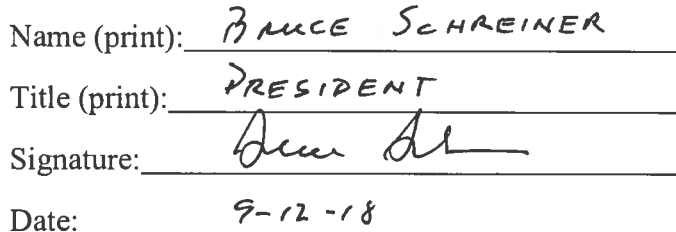 Name (print): BRUCE SCHREINER
Title (print): PRESIDENT
Signature:
Date: 9-12-18